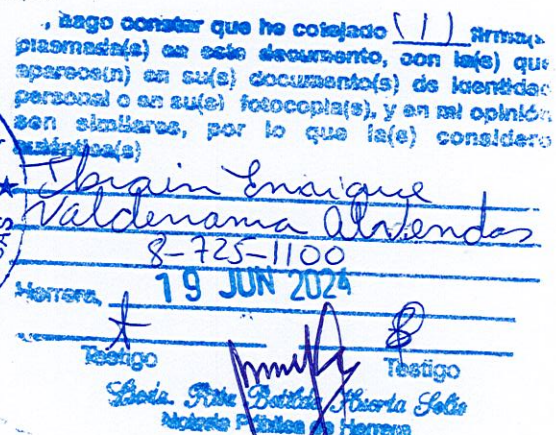 , hago constar que he cotejado (1) firma(s
plasmada(s) en este documento, con la(s) que
aparece(n) en su(s) documento(s) de identidad
personal o en su(s) fotocopia(s), y en mi opinión
son similares, por lo que la(s) considero
auténtica(s)
Ibrain Enrique
Valderrama Alvendas
8-725-1100
19 JUN 2024
Herrera,
Testigo Testigo
Licda. Rita Betilda Huerta Solis
Notaria Pública de Herrera